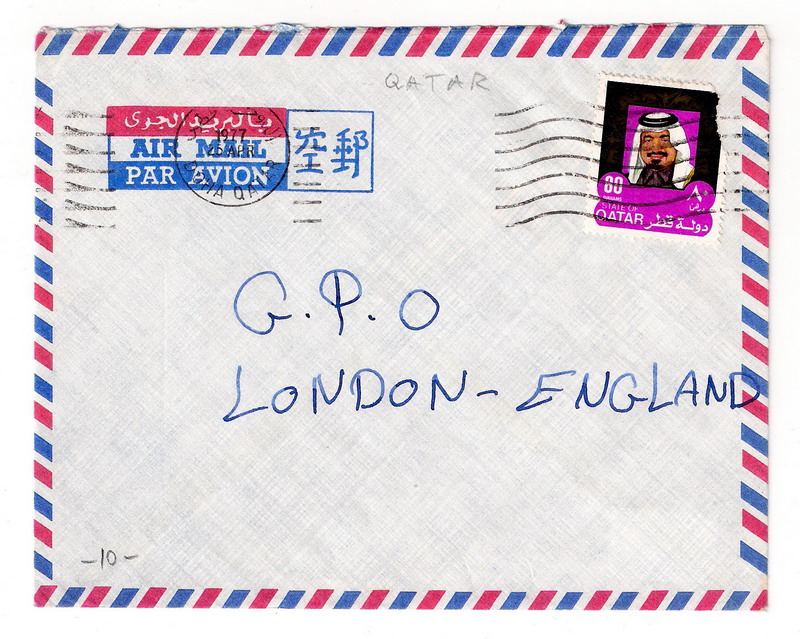 QATAR
بالبريد الجوى
AIR MAIL
PAR AVION
空郵
1977
25 APR
DOHA QATAR
80
DIRHAMS
STATE OF
QATAR
٨٠
درهم
دولة قطر
G.P.O
LONDON - ENGLAND
-10-